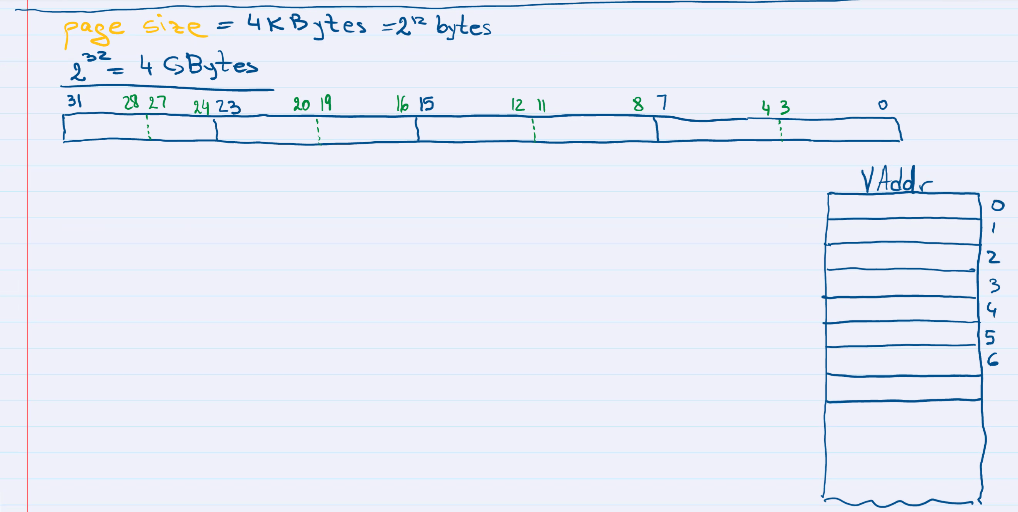 page size = 4KBytes = 2¹² bytes
2³² = 4 GBytes
31 28 27 24 23 20 19 16 15 12 11 8 7 4 3 0
VAddr
0
1
2
3
4
5
6